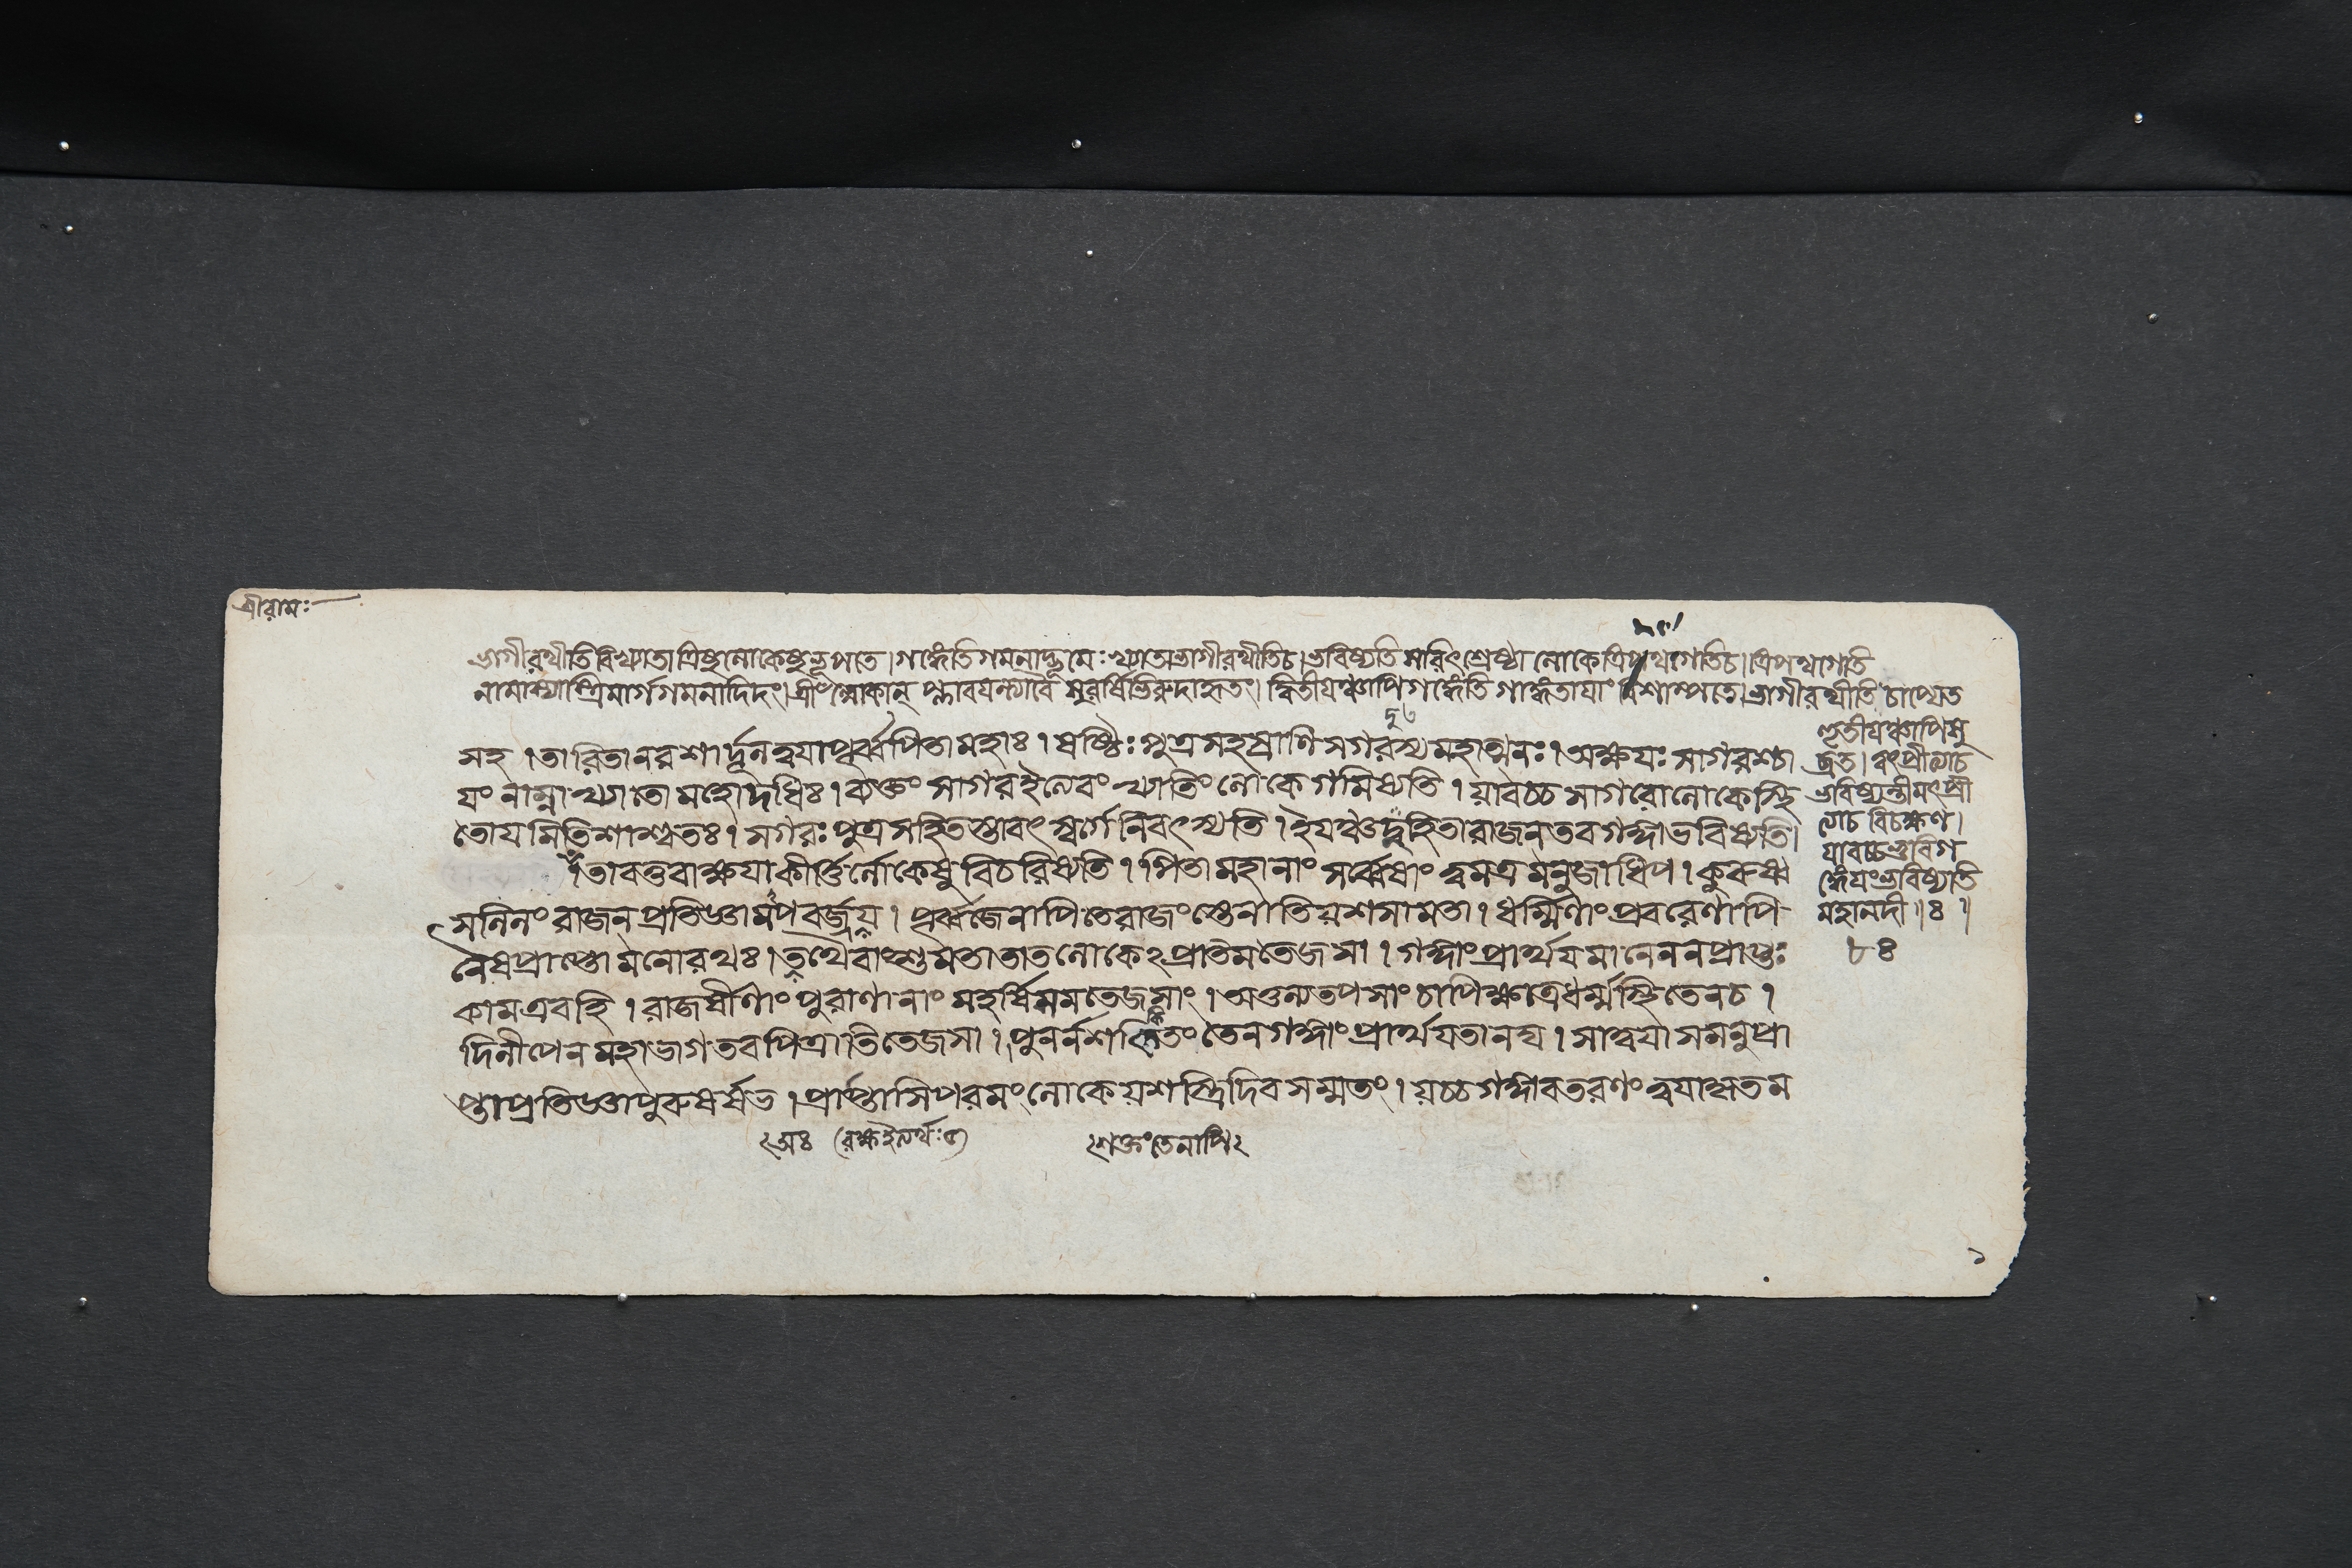 শ্রীরামঃ
ভাগীরথীতি বিখ্যাতা ত্রিষু লোকেষু ভূপতে। গঙ্গেতি গমনাদ্ভূমেঃ খ্যাতা ভাগীরথীতি চ। ভবিষ্যতি সরিৎশ্রেষ্ঠা লোকে ত্রিপথগেতি চ। ত্রিপথগেতি
নামাস্যাস্ত্রিমার্গগমনাদিদং। ত্রীঁল্লোকান্ প্লাবয়ন্ত্যাবৈ সুরর্ষিভিরুদাহৃতং। দ্বিতীয়ঞ্চাপি গঙ্গেতি গাঙ্গতায়াং বিশাম্পতে। ভাগীরথীতি চাপ্যেত
সহ। তারিতা নরশার্দ্দূল ত্বয়া পূর্ব্বপিতামহাঃ। ষষ্টিঃ পুত্রসহস্রাণি সগরস্য মহাত্মনঃ। অক্ষয়ঃ সাগরশ্চা
য়ং নাম্না খ্যাতো মহোদধিঃ। ব্যক্তং সাগর ইত্যেবং খ্যাতিং লোকে গমিষ্যতি। যাবচ্চ সাগরো লোকে স্থি
তোয়মিতি শাশ্বতঃ। সগরঃ পুত্রসহিতস্তাবৎ স্বর্গে নিবৎস্যতি। ইয়ঞ্চ দুহিতা রাজন তব গঙ্গা ভবিষ্যতি।
তাবত্তবাক্ষয়া কীর্ত্তির্লোকেষু বিচরিষ্যতি। পিতামহানাং সর্ব্বেষাং ত্বমত্র মনুজাধিপ। কুরুষ্ব
সলিলং রাজন প্রতিজ্ঞামপবর্জ্জয়। পূর্ব্বজেনাপি তে রাজংস্তেনাতিযশসামতা। ধর্ম্মিণাং প্রবরেণাপি
নৈষ প্রাপ্তো মনোরথঃ। তথৈবাংশুমতা তাত লোকেঽপ্রতিমতেজসা। গঙ্গাং প্রার্থয়মানেন ন প্রাপ্তঃ
কাম এব হি। রাজর্ষীণাং পুরাণানাং মহর্ষিসমতেজসাং। অতুল্যতপসাং চাপি ক্ষত্রধর্ম্মস্থিতেন চ।
দিলীপেন মহাভাগ তব পিত্রাতিতেজসা। পুনর্নশঙ্কিতং তেন গঙ্গাং প্রার্থয়তানঘ। সা ত্বয়া সমনুপ্রা
প্তা প্রতিজ্ঞা পুরুষর্ষভ। প্রাপ্তাসি পরমং লোকে যশস্ত্রিদিবসম্মতং। যচ্চ গঙ্গাবতরণং ত্বয়া কৃতম
তৃতীয়ঞ্চাপি সু
ব্রত। ত্বৎপ্রীত্যা চ
ভবিষ্যন্তী মৎপ্রী
ত্যা চ বিচক্ষণ।
যাবচ্চ ভুবি গ
ঙ্গেয়ং ভবিষ্যতি
মহানদী॥ঃ॥
৮ঃ
শক্তং তেনাপি
১